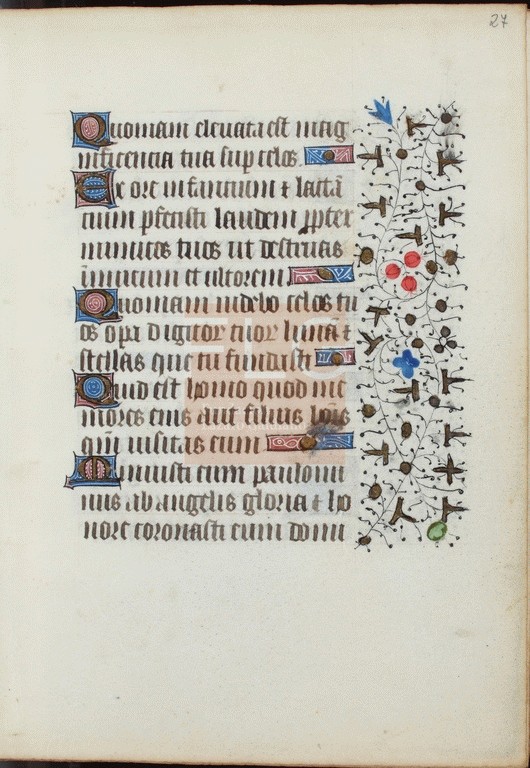 27
Quoniam elevata est mag
nificencia tua sup celos.
Ex ore infancium & lactã
cium pfecisti laudem ppter
inimicos tuos ut destruas
inimicum et ultorem
Quoniam videbo celos tu
os opa digitor tuor lunã &
stellas que tu fundasti
Quid est homo quod me
mores eius aut filius hoĩs
qm̃ visitas eum
Minuisti eum paulomi
nus ab angelis gloria & ho
nore coronasti eum domi